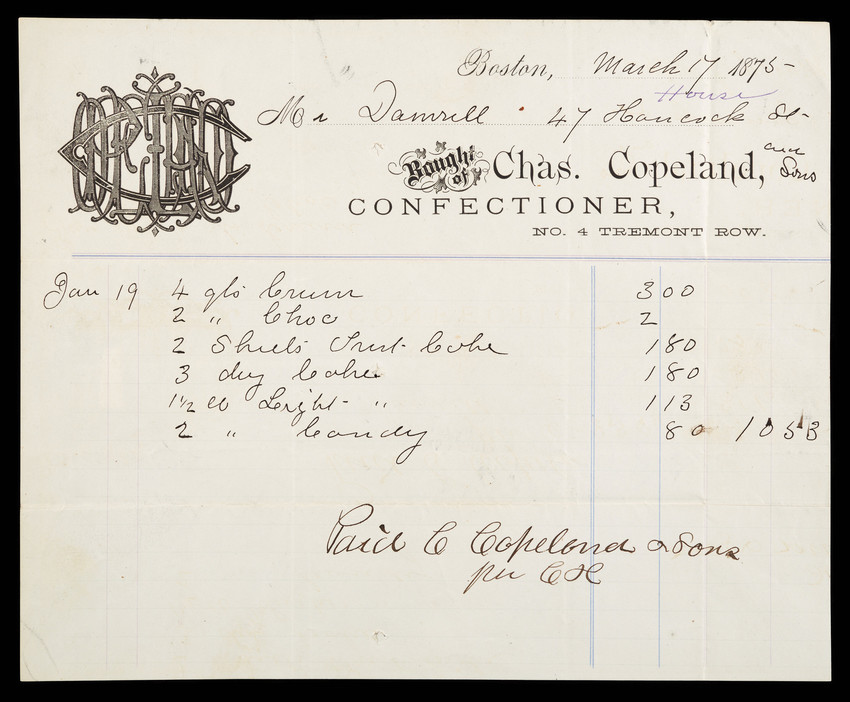 Boston, March 17 1875
House
Mr Damrell 47 Hancock St
Bought of Chas. Copeland, and Sons
CONFECTIONER,
NO. 4 TREMONT ROW.
Jan 19 4 qts Cream 3 00
2 " Choc 2
2 Sheets Fruit Cake 1 80
3 doz Cake 1 80
1 1/2 lb Light " 1 13
2 " Candy 80 10 53
Paid C Copeland & Sons
per CH